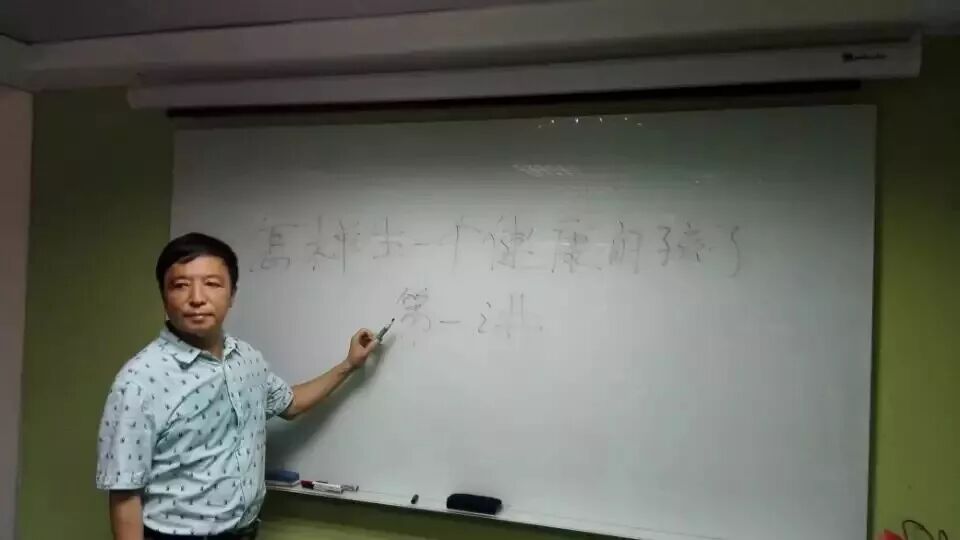 怎样生一个健康的孩子
第一讲